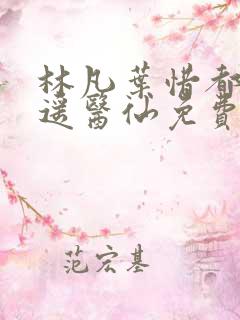 林凡葉惜都
遥醫仙免費
范宏基